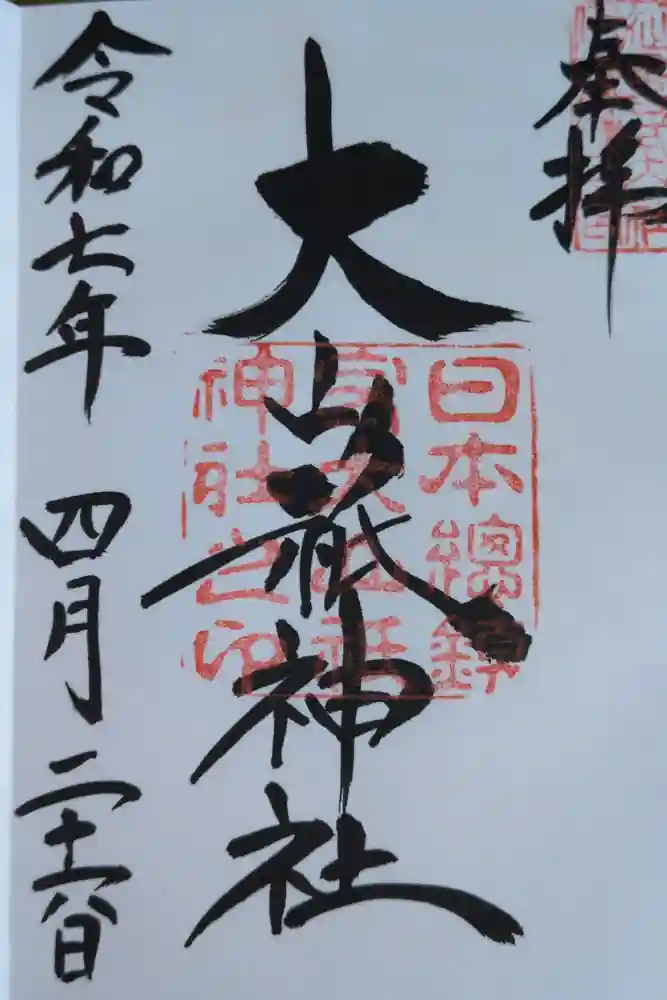 奉拝
大山祇神社
日本總鎮
守大山祇
神社之印
令和七年 四月 二十六日